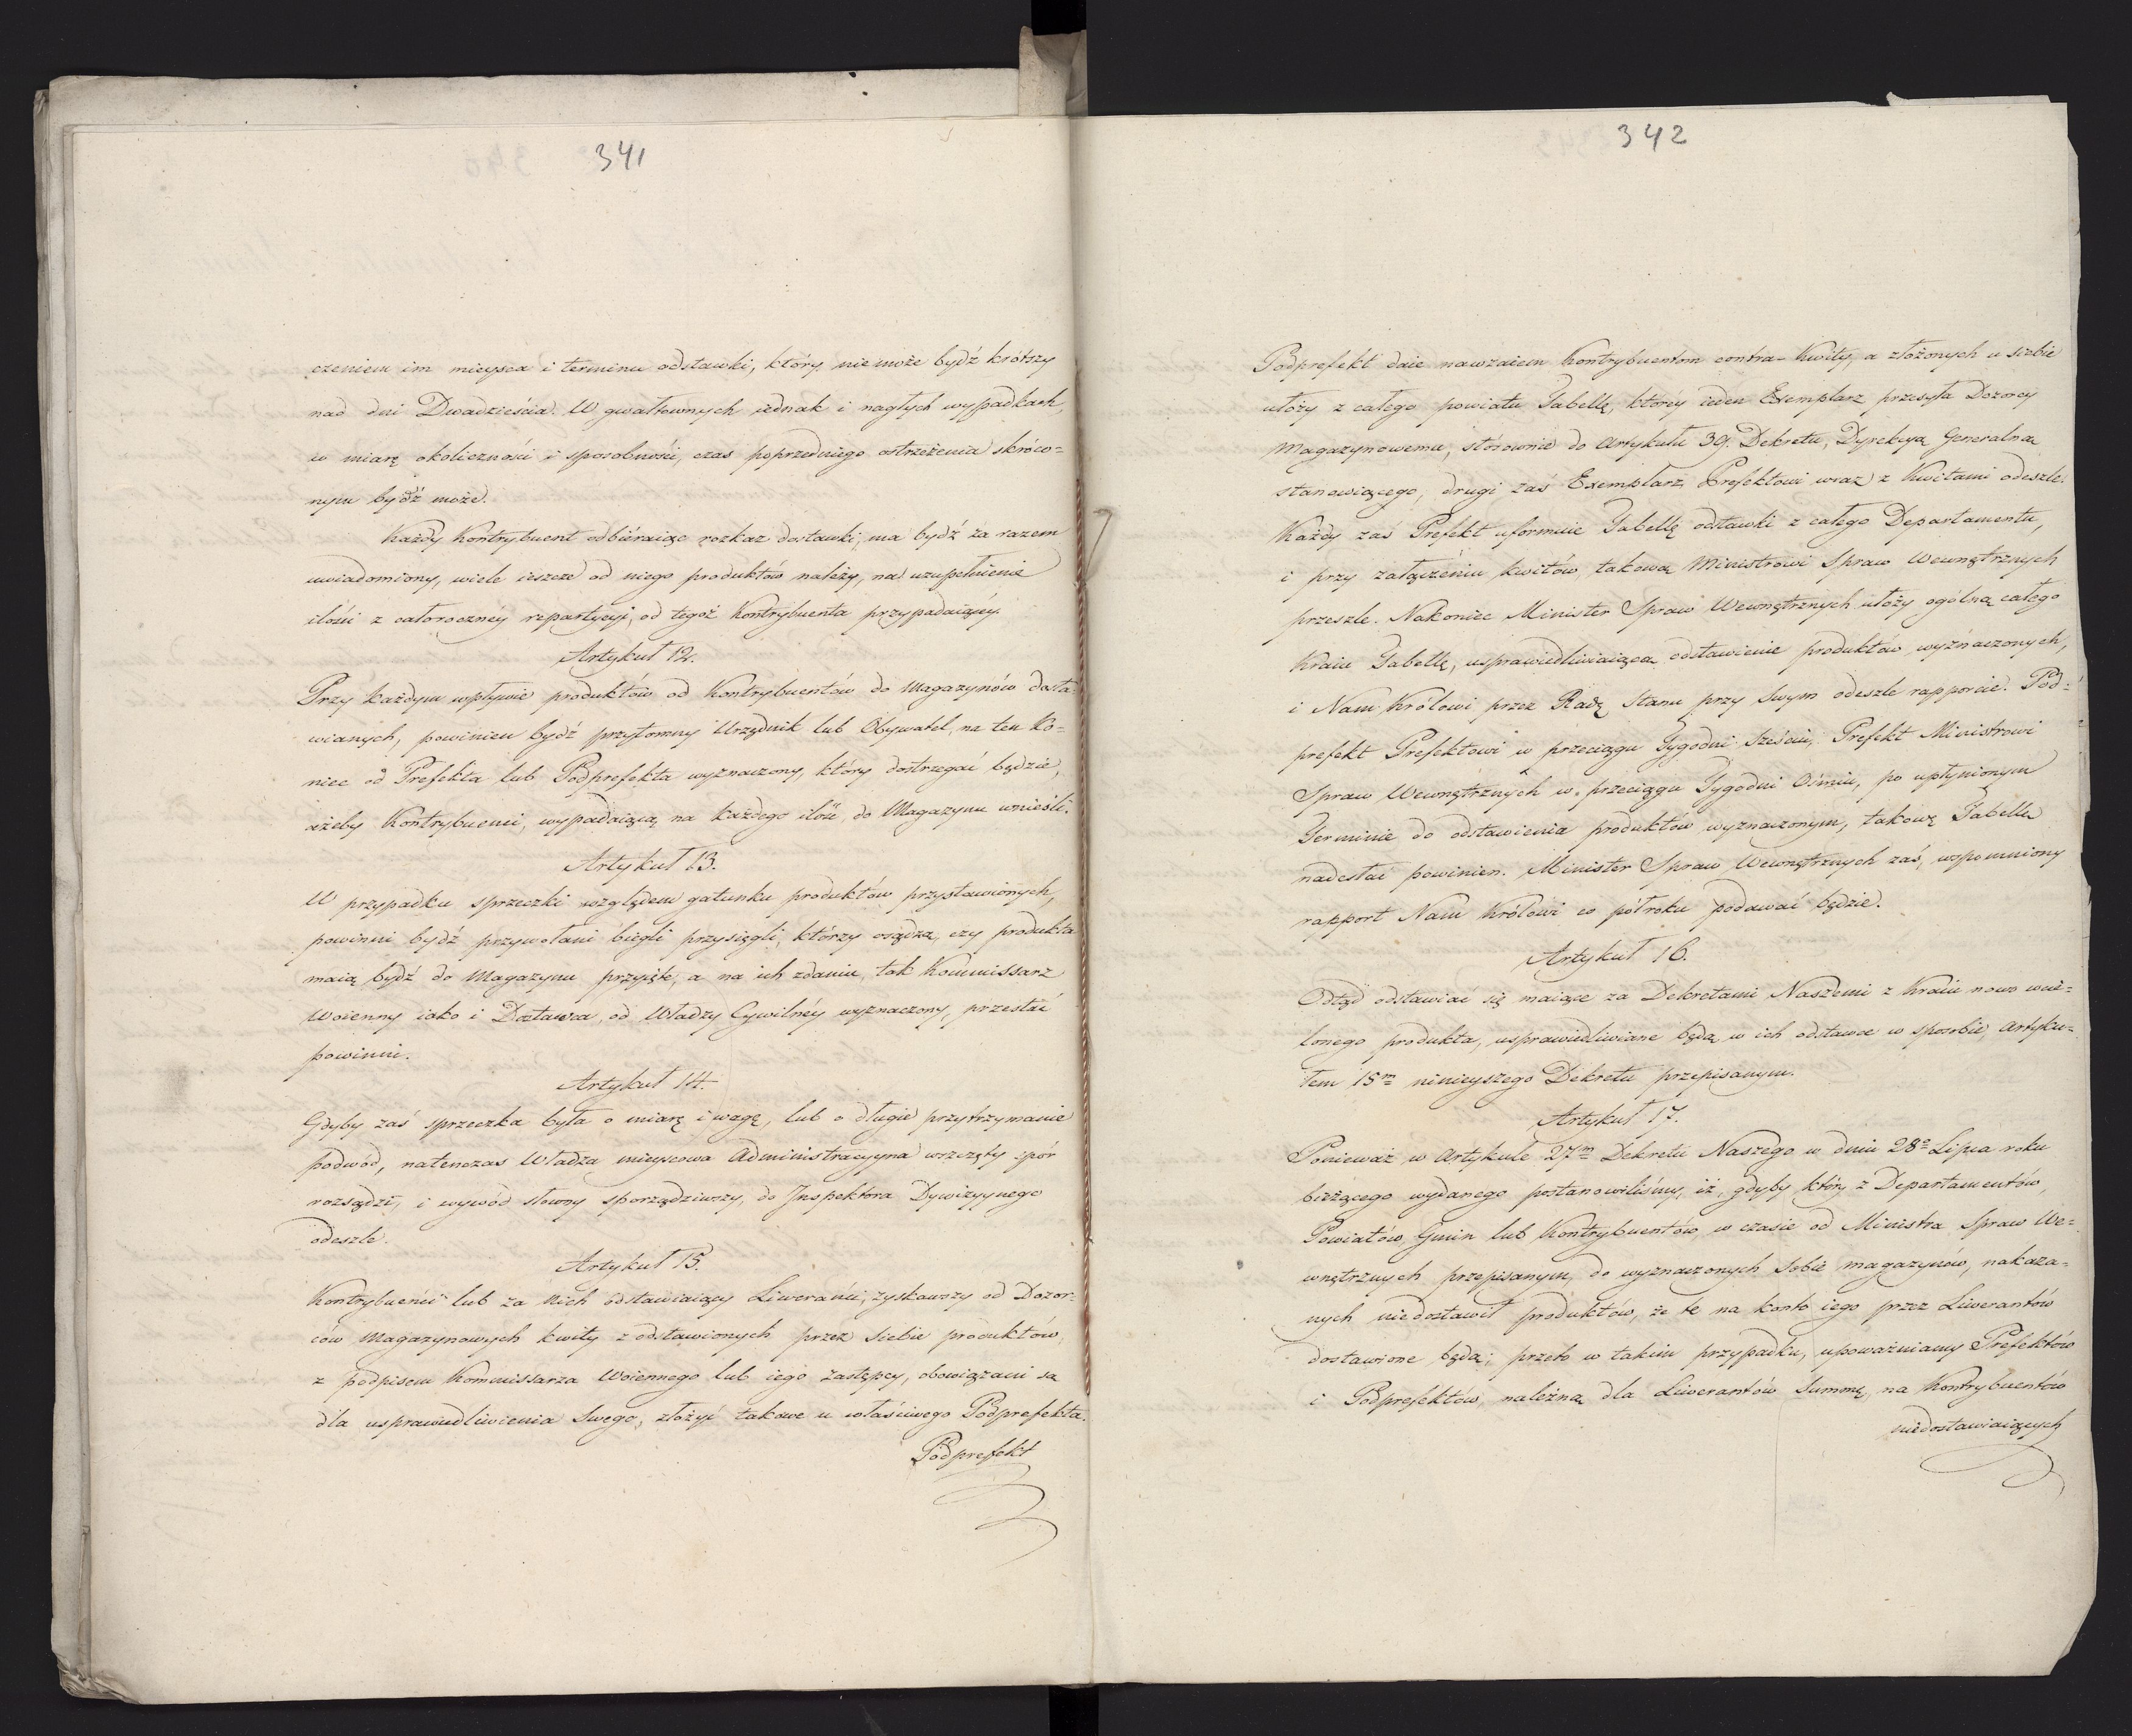 341
czeniem im mieysca i terminu odstawki, który nie może bydź krótszy
nad dni Dwadzieścia. W gwałtownych iednak i nagłych wypadkach,
w miarę okoliczności i sposobności, czas poprzedniego ostrzeżenia skróco-
nym bydź może.
Każdy Kontrybuent odbieraiąc rozkaz dostawki, ma bydź za razem
uwiadomiony, wiele ieszcze od niego produktów należy, na uzupełnienie
ilości z całorocznéy repartycyi, od tegoż Kontrybuenta przypadaiącéy.
Artykuł 12.
Przy każdym wpływie produktów od Kontrybuentów do Magazynów dosta-
wianych, powinien bydź przytomny Urzędnik lub Obywatel, na ten ko-
niec od Prefekta lub Podprefekta wyznaczony, który dostrzegać będzie,
ażeby Kontrybuenci, wypadaiącą na każdego ilość, do Magazynu wnieśli.
Artykuł 13.
W przypadku sprzeczki względem gatunku produktów przystawionych,
powinni bydź przywołani biegli przysięgli, którzy osądzą, czy produkta
maią bydź do Magazynu przyięte, a na ich zdaniu, tak Kommissarz
Woienny iako i Dostawca, od Władzy Cywilnéy wyznaczony, przestać
powinni.
Artykuł 14.
Gdyby zaś sprzeczka była o miarę i wagę, lub o długie przytrzymanie
podwód, natenczas Władza mieyscowa Administracyyna wszczęty spór
rozsądzi, i wywód słowny sporządziwszy, do Inspektora Dywizyynego
odeszle.
Artykuł 15.
Kontrybuenci lub za Nich odstawiaiący Liweranci, zyskawszy od Dozor-
ców Magazynowych kwity z odstawionych przez siebie produktów,
z podpisem Kommissarza Woiennego lub iego zastępcy, obowiązani są
dla usprawiedliwienia Swego, złożyć takowe u właściwego Podprefekta.
Podprefekt
342
Podprefekt daie nawzaiem Kontrybuentom contra-Kwity, a złożonych u siebie
ułoży z całego powiatu Tabellę, któréy ieden Exemplarz przesyła Dozorcy
Magazynowemu, stósownie do Artykułu 39. Dekretu, Dyrekcyą Generalną
stanowiącego, drugi zaś Exemplarz Prefektowi wraz z Kwitami odeszle.
Każdy zaś Prefekt uformuie Tabellę odstawki z całego Departamentu,
i przy załączeniu kwitów, takową Ministrowi Spraw Wewnętrznych
przeszle. Nakoniec Minister Spraw Wewnętrznych ułoży ogólną całego
Kraiu Tabellę, usprawiedliwiaiącą odstawienie produktów wyznaczonych,
i Nam Królowi przez Radę Stanu przy Swym odeszle rapporcie. Pod-
prefekt Prefektowi w przeciągu Tygodni Sześciu, Prefekt Ministrowi
Spraw Wewnętrznych w przeciągu Tygodni Ośmiu, po upłynionym
Terminie do odstawienia produktów wyznaczonym, takowę Tabellę
nadesłać powinien. Minister Spraw Wewnętrznych zaś, wspomniony
rapport Nam Królowi co półroku podawać będzie.
Artykuł 16.
Odtąd odstawiać się maiące za Dekretami Naszemi z Kraiu nowo wcie-
lonego produkta, usprawiedliwiane będą w ich odstawce w sposobie, Artyku-
łem 15m ninieyszego Dekretu przepisanym.
Artykuł 17.
Ponieważ w Artykule 27m Dekretu Naszego w dniu 28o Lipca roku
bieżącego wydanego postanowiliśmy, iż, gdyby który z Departamentów,
Powiatów, Gmin lub Kontrybuentów w czasie od Ministra Spraw We-
wnętrznych przepisanym, do wyznaczonych Sobie magazynów, nakaza-
nych nie dostawił produktów, że te na konto iego przez Liwerantów
dostawione będą; przeto w takim przypadku, upoważniamy Prefektów
i Podprefektów, należną dla Liwerantów Summę, na Kontrybuentów
niedostawiaiących